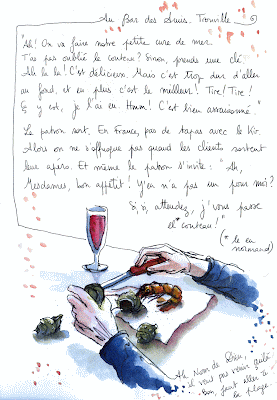 Au Bar des Amis. Trouville.
"Ah! On va faire notre petite cure de mer.
T'as pas oublié le couteau? Sinon, prends une clé.
Ah la la! C'est délicieux. Mais c'est trop dur d'aller
au fond, et en plus c'est le meilleur! Tire! Tire!
Ça y est, je l'ai eu. Hmm! C'est bien assaisonné."
Le patron sort. En France, pas de tapas avec le Kir.
Alors on ne s'offusque pas quand les clients sortent
leur apéro. Et même le patron s'invite: "Ah,
Mesdames, bon appétit! Y'en n'a pas un pour moi?
Si, si, attendez, j'vous passe
el* couteau!"
(* le en
normand)
Ah, Nom de Dieu,
il veut pas venir
bon, faut aller à
la plage.